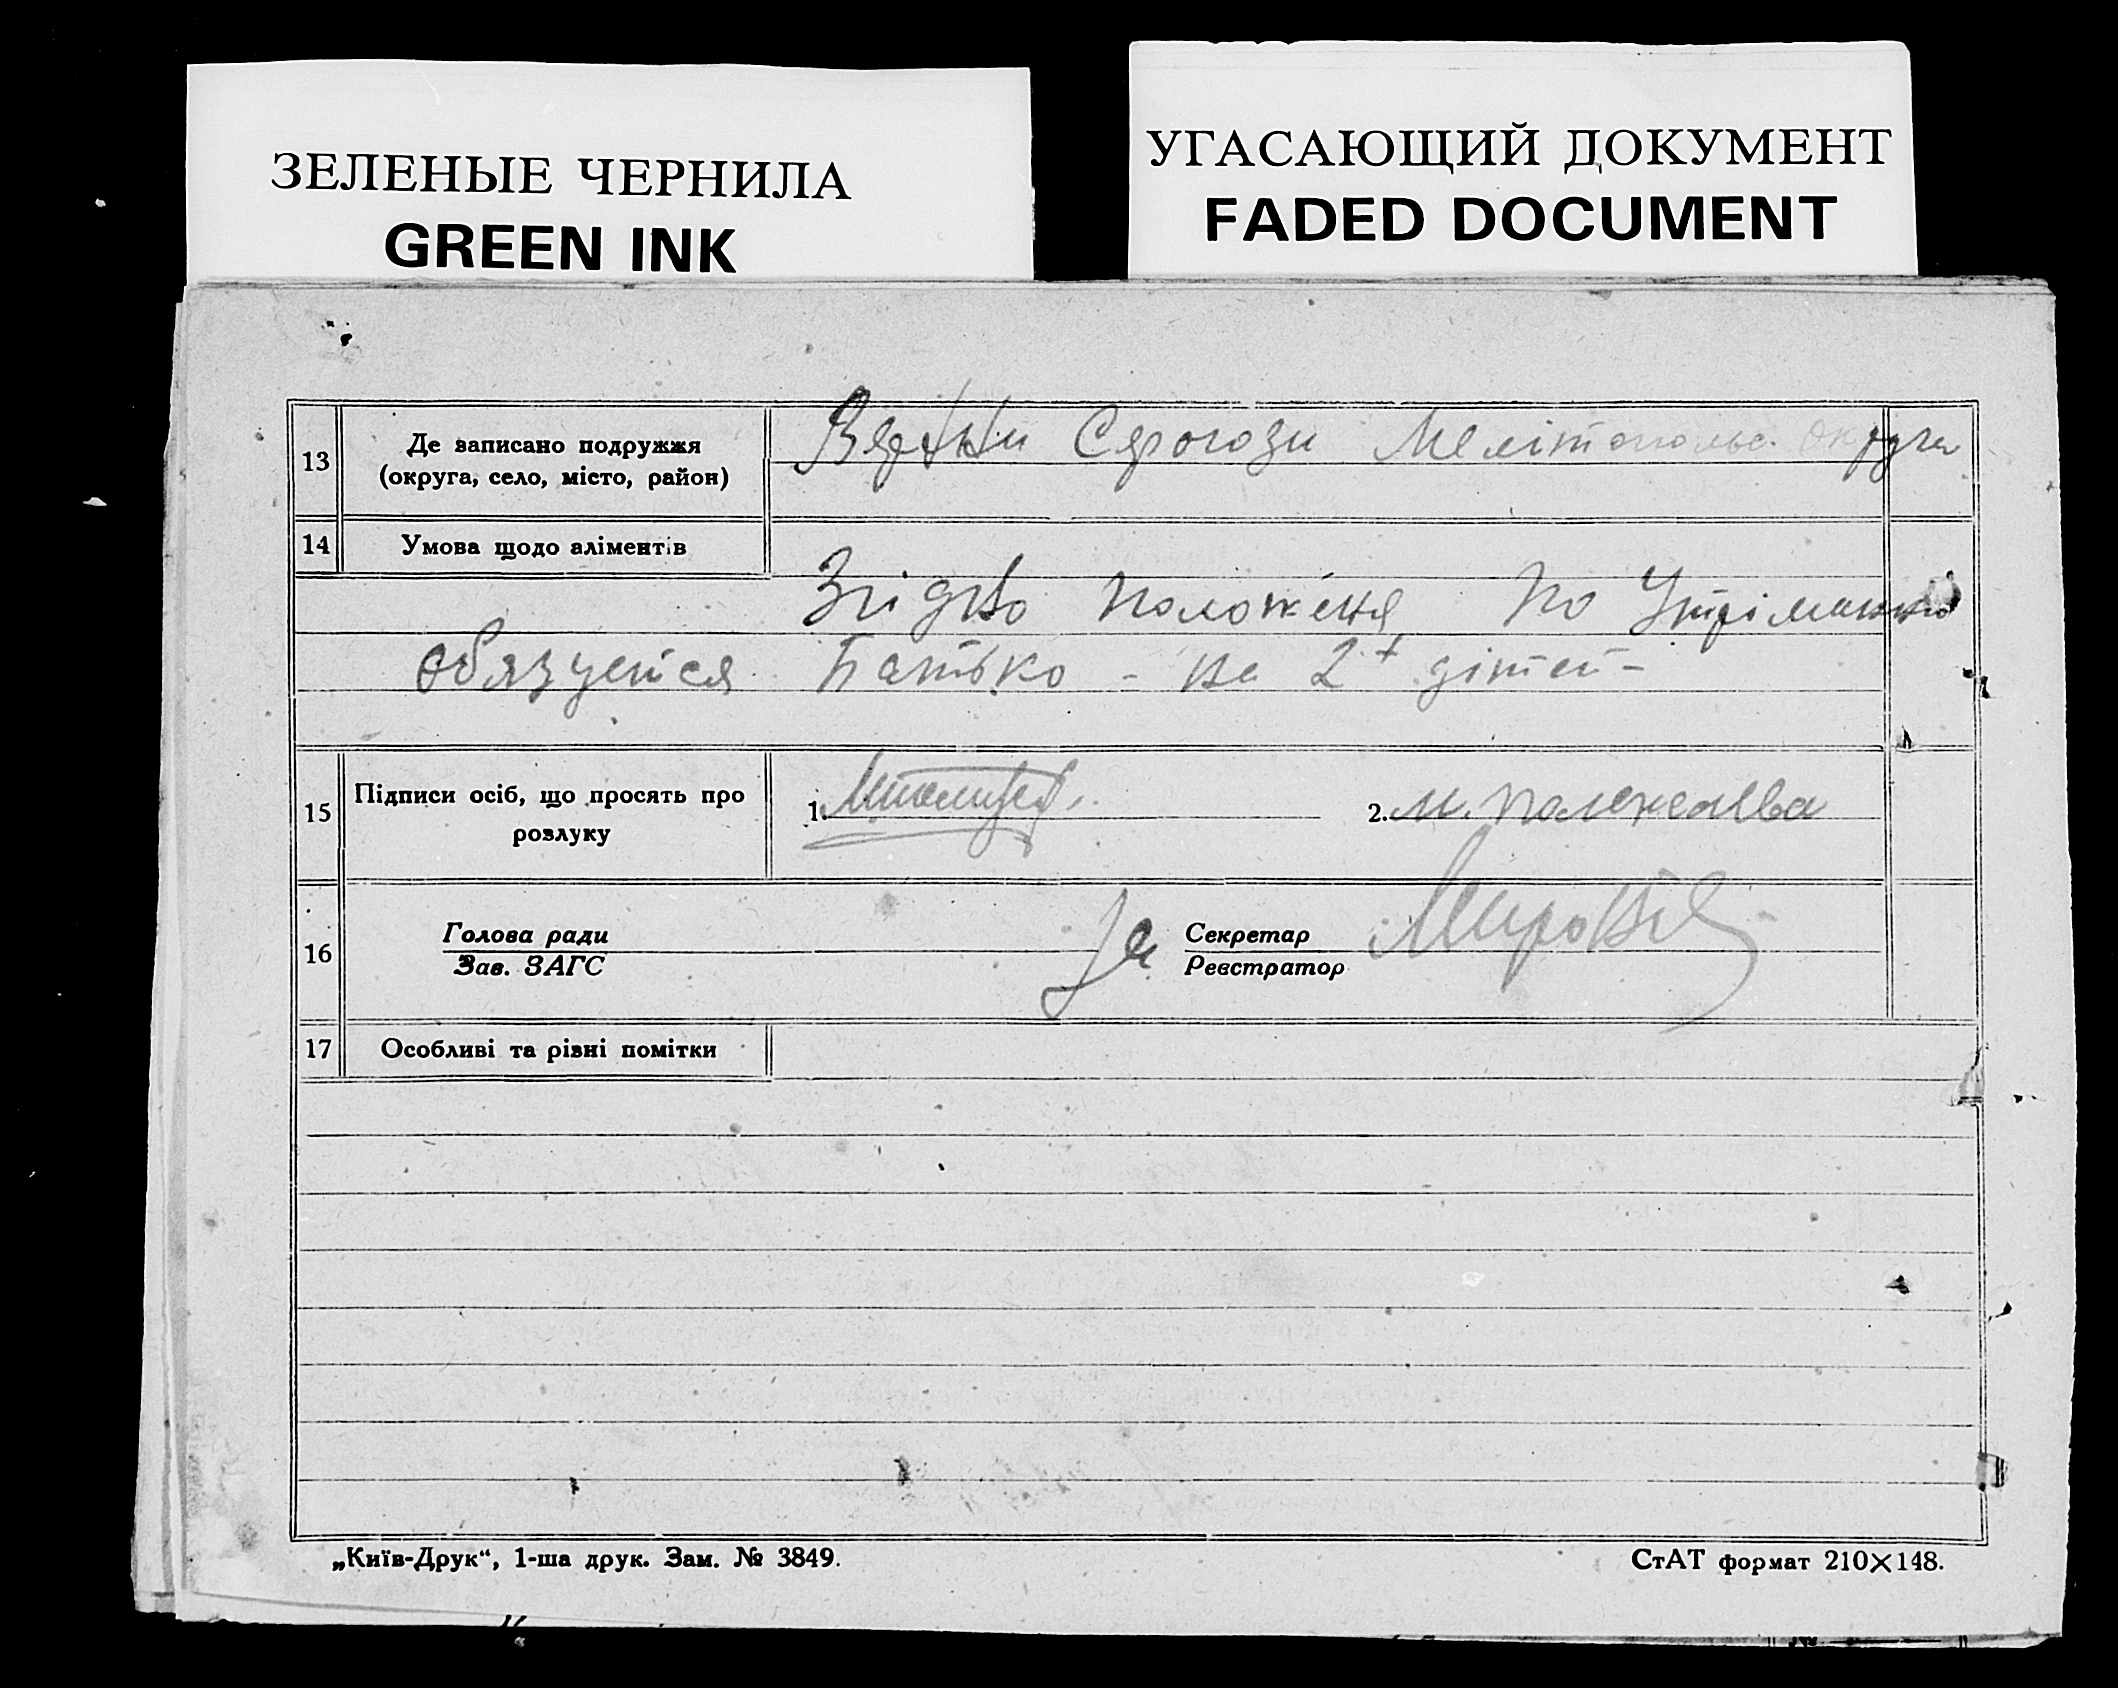 ЗЕЛЕНЫЕ ЧЕРНИЛА
GREEN INK
УГАСАЮЩИЙ ДОКУМЕНТ
FADED DOCUMENT
13
Де записано подружжя
(округа, село, місто, район)
Сярогози Мелітопольс. округи
14
Умова щодо аліментів
Згідно положеня по Утріманню
обязуется Батько - на 2х дітей -
15
Підписи осіб, що просять про
розлуку
1.
2. М.
16
Голова ради
Зав. ЗАГС
За
Секретар
Реєстратор
17
Особливі та різні помітки
„Київ-Друк“, 1-ша друк. Зам. № 3849.
СтАТ формат 210×148.